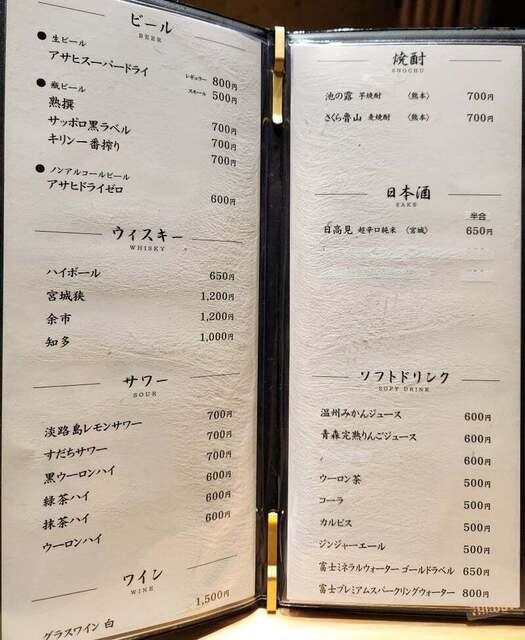 ビール
BEER
● 生ビール
アサヒスーパードライ
レギュラー 800円
スモール 500円
● 瓶ビール
熟撰 700円
サッポロ黒ラベル 700円
キリン一番搾り 700円
● ノンアルコールビール
アサヒドライゼロ 600円
ウィスキー
WHISKY
ハイボール 650円
宮城狭 1,200円
余市 1,200円
知多 1,000円
サワー
SOUR
淡路島レモンサワー 700円
すだちサワー 700円
黒ウーロンハイ 700円
緑茶ハイ 600円
抹茶ハイ 600円
ウーロンハイ 600円
ワイン
WINE
グラスワイン 白 1,500円
焼酎
SHOCHU
池の露 芋焼酎 〈熊本〉 700円
さくら 麦焼酎 〈熊本〉 700円
日本酒
SAKE
半合
日高見 超辛口純米 〈宮城〉 650円
ソフトドリンク
SOFT DRINK
温州みかんジュース 600円
青森完熟りんごジュース 600円
600円
ウーロン茶 500円
コーラ 500円
カルピス 500円
ジンジャーエール 500円
富士ミネラルウォーター ゴールドラベル 650円
富士プレミアムスパークリングウォーター 800円